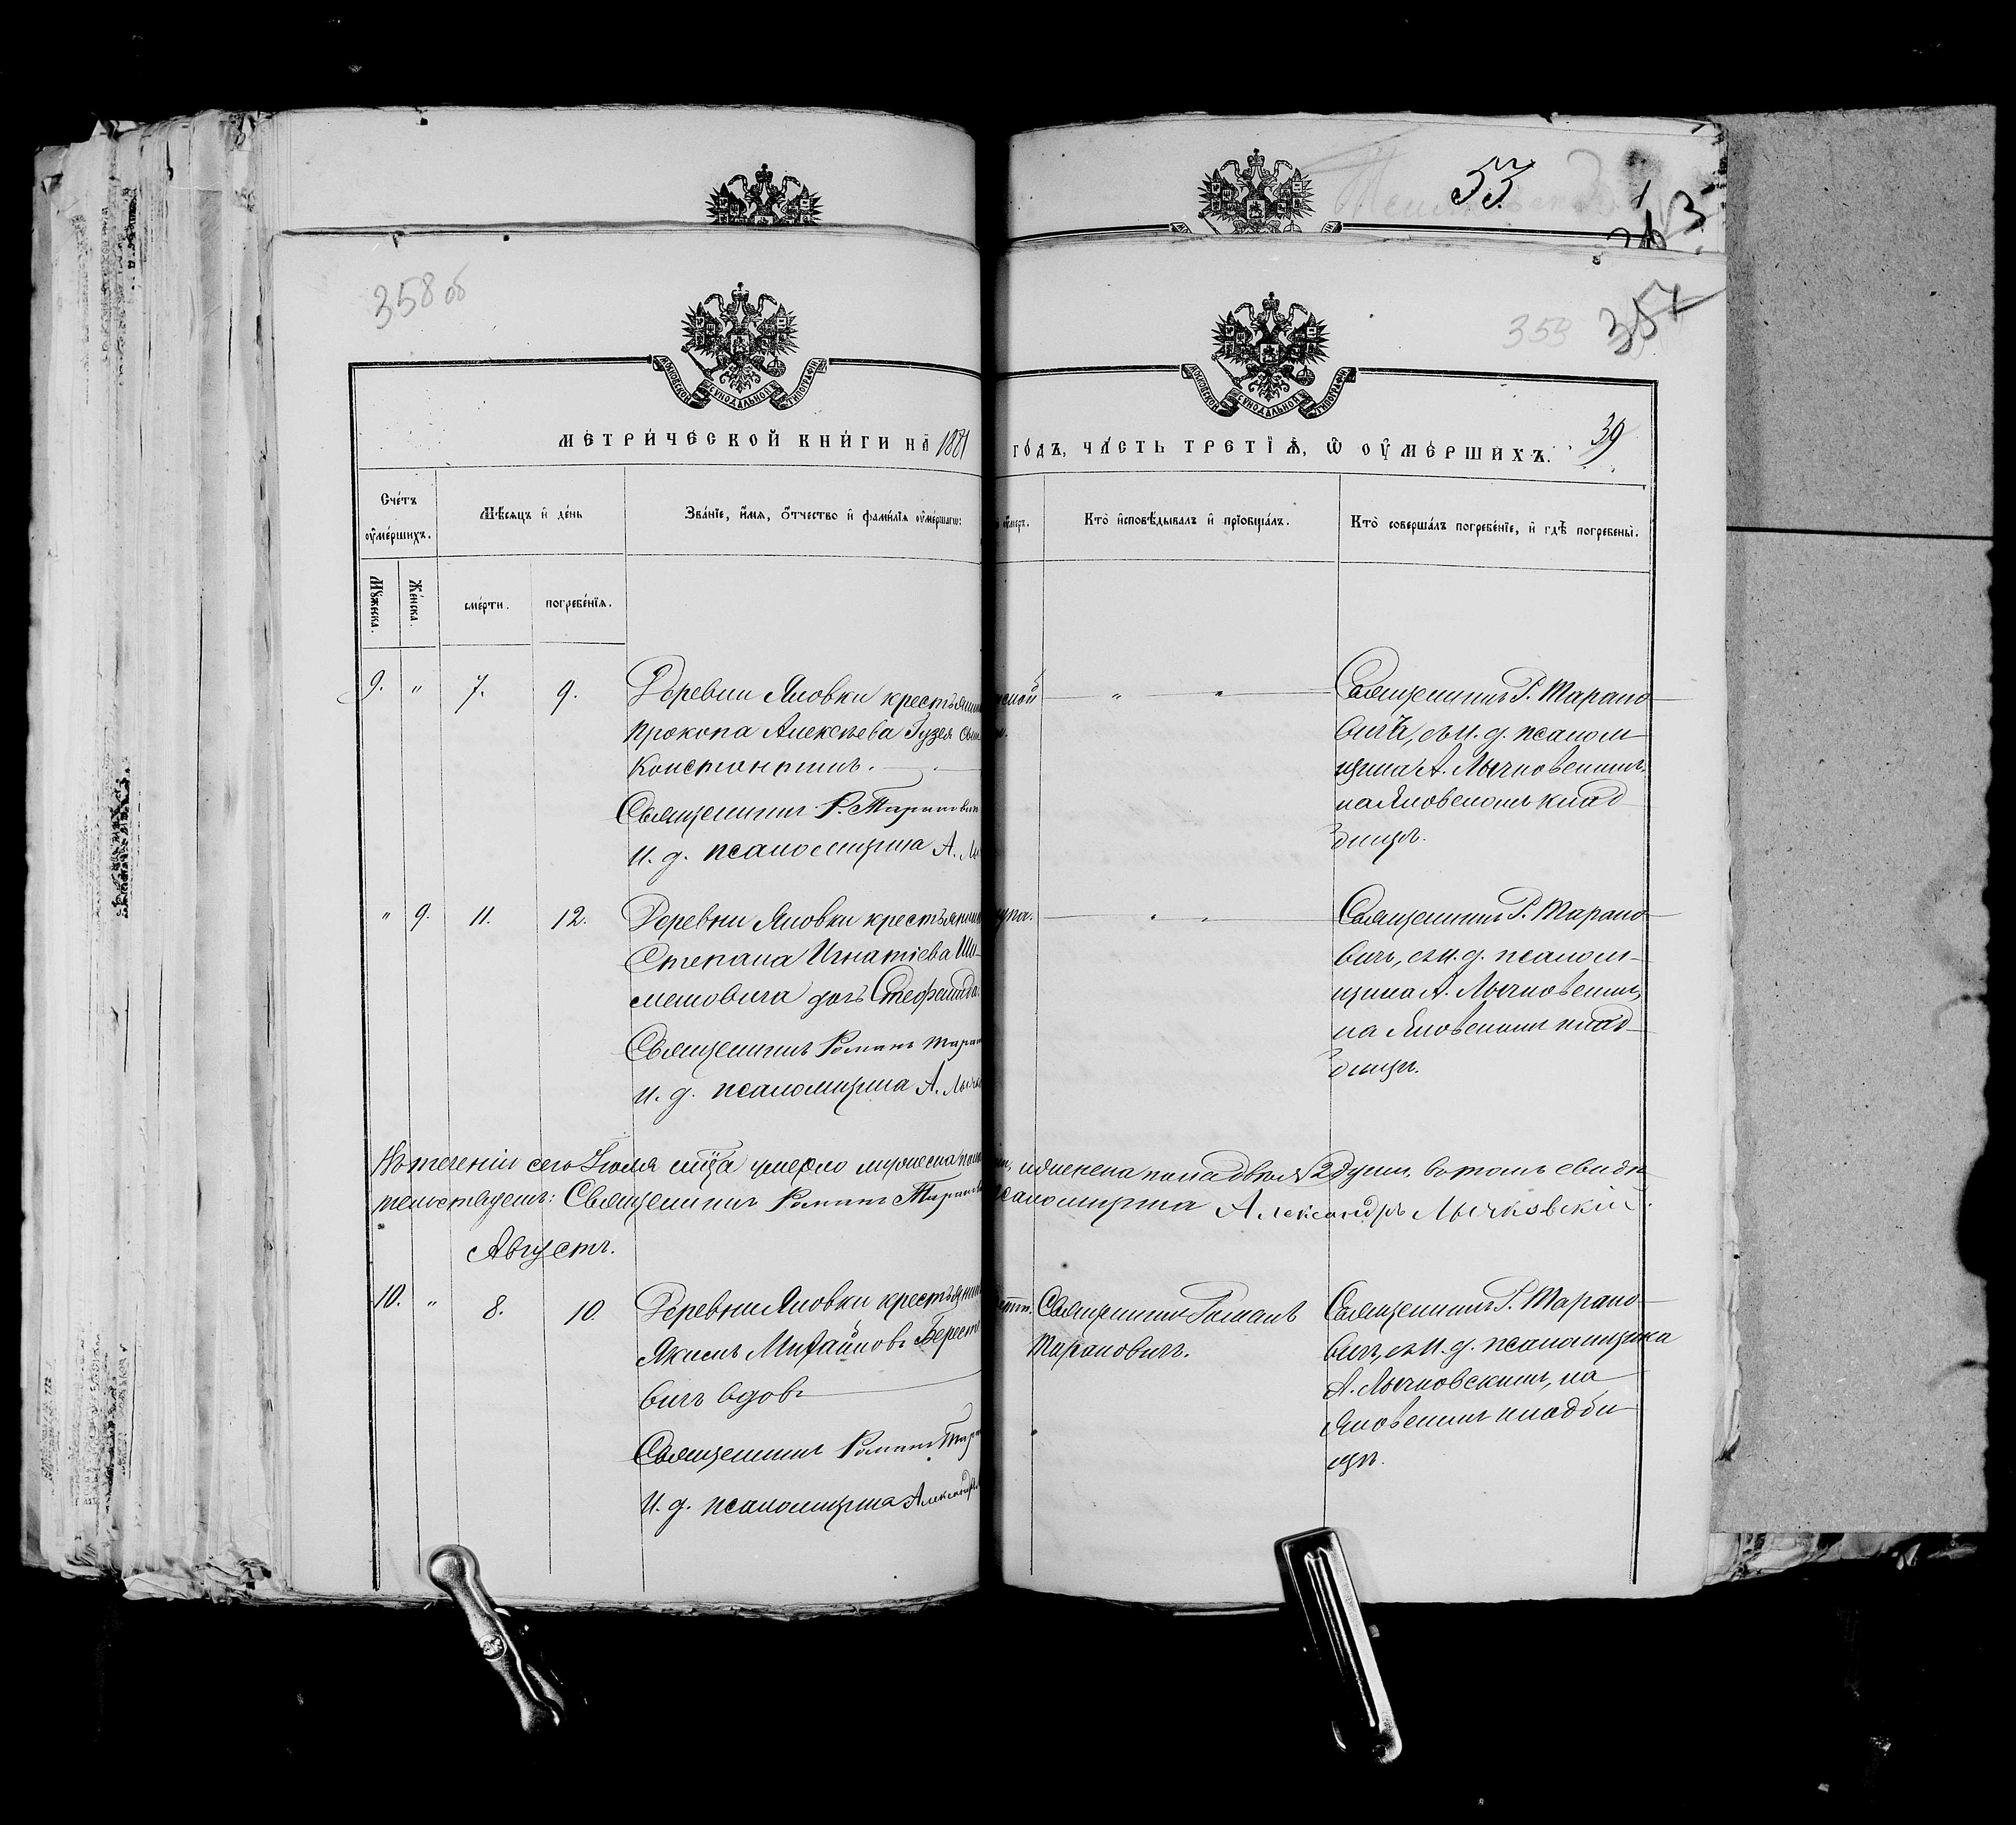 53
358 об
353 357
МОСКОВСКОЙ СѴНОДАЛЬНОЙ ТИПОГРАФІИ
МОСКОВСКОЙ СѴНОДАЛЬНОЙ ТИПОГРАФІИ
МЕТРИ́ЧЕСКОЙ КНИ́ГИ НА 1881
ГО́ДЪ, ЧА́СТЬ ТРЕТІ́Ѧ, Ѡ ОУ҆МЕ́РШИХЪ. 39
Сче́тъ оу҆ме́ршихъ.
Мѣ́сяцъ и҆ де́нь
Зва́нїе, и҆́мя, ѻ҆́тчество и҆ фами́лїя оу҆ме́ршагѡ:
оу҆мер.
Кто̀ и҆сповѣ́дывалъ и҆ прїѻбща́лъ.
Кто̀ соверша́лъ погребе́нїе, и҆ гдѣ̀ погребены̀.
Мꙋ́жеска.
Же́нска.
сме́рти.
погребе́нїя.
9. " 7. 9. Деревни Яновки крестьянин
Прокопа Алексѣева Гузея сын
Константинъ.
Священникъ Р. Таранович
И. д. псаломщика А. Лы
" " Священникъ Р. Тарано-
вичъ, съ и. д. псалом
щика А. Лычковскимъ,
на Яновскомъ клад-
бищѣ.
" 9. 11. 12. Деревни Яновки крестьянин
Степана Игнатіева
дочь Стефанида.
Священникъ Романъ Таран
И. д. псаломщика А. Лычк
" " Священникъ Р. Тарано-
вичъ, съ и. д. псалом-
щика А. Лычковскимъ,
на Яновскомъ клад-
бищѣ.
Въ теченіи сего Іюля мца умерло мужеска пола
женска пола двѣ 2 души, въ томъ свидѣ-
тельствуемъ: Священникъ Романъ Таранов
псаломщика Александръ Лычковскій.
Августъ.
10. " 8. 10. Деревни Яновки крестьянин
Якимъ Михайловъ Берест
вичъ вдовъ
Священникъ Романъ Тара
И. д. псаломщика Александръ
Священникъ Романъ
Тарановичъ.
Священникъ Р. Тарано-
вичъ, съ и. д. псаломщика
А. Лычковскимъ, на
Яновскомъ кладби-
щѣ.